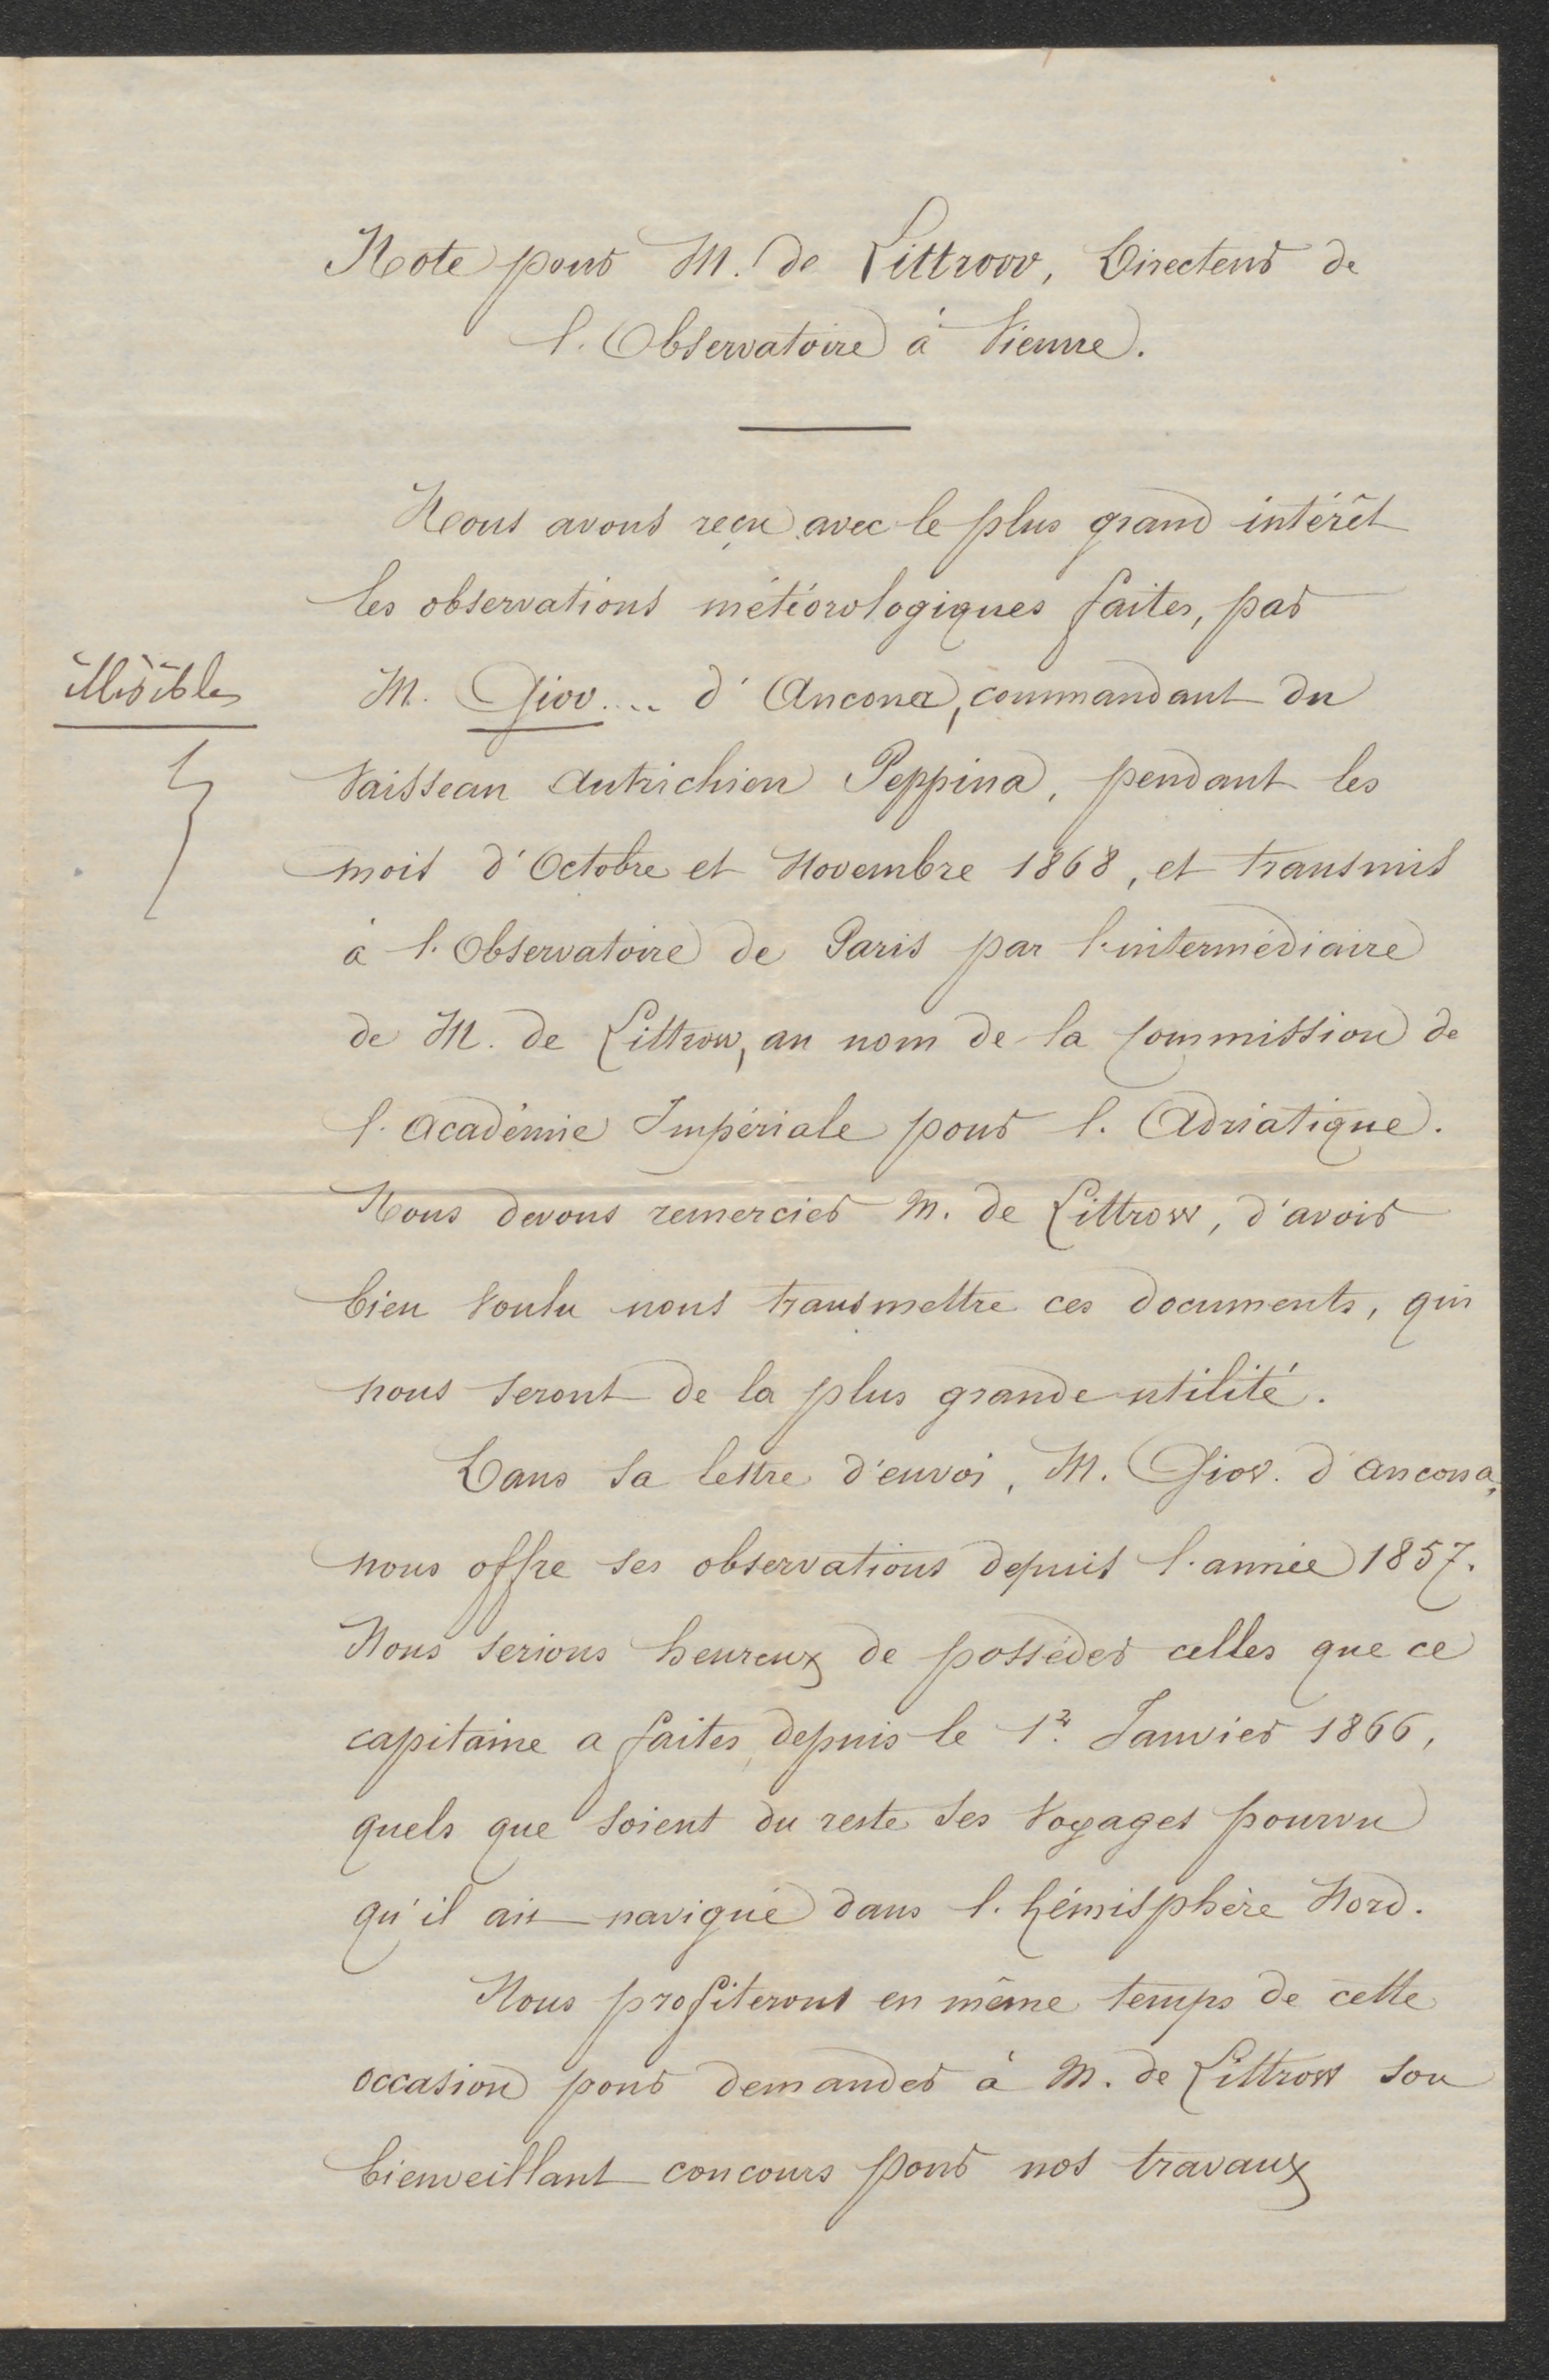 Note pour M. de Littrow, Directeur de
l'Observatoire à Vienne.
Nous avons reçu avec le plus grand intérêt
les observations météorologiques faites, par
illisible
M. Giov.... d'Ancona, commandant du
Vaisseau Autrichien Peppina, pendant les
mois d'Octobre et Novembre 1868, et transmis
à l'Observatoire de Paris par l'intermédiaire
de M. de Littrow, au nom de la Commission de
l'Académie Impériale pour l'Adriatique.
Nous devons remercier M. de Littrow, d'avoir
bien voulu nous transmettre ces documents, qui
nous seront de la plus grande utilité.
Dans sa lettre d'envoi, M. Giov. d'Ancona,
nous offre ses observations depuis l'année 1857.
Nous serions heureux de posséder celles que ce
capitaine a faites depuis le 1er Janvier 1866,
quels que soient du reste ses voyages pourvu
qu'il ait navigué dans l'hémisphère Nord.
Nous profiterons en même temps de cette
occasion pour demander à M. de Littrow son
bienveillant concours pour nos travaux